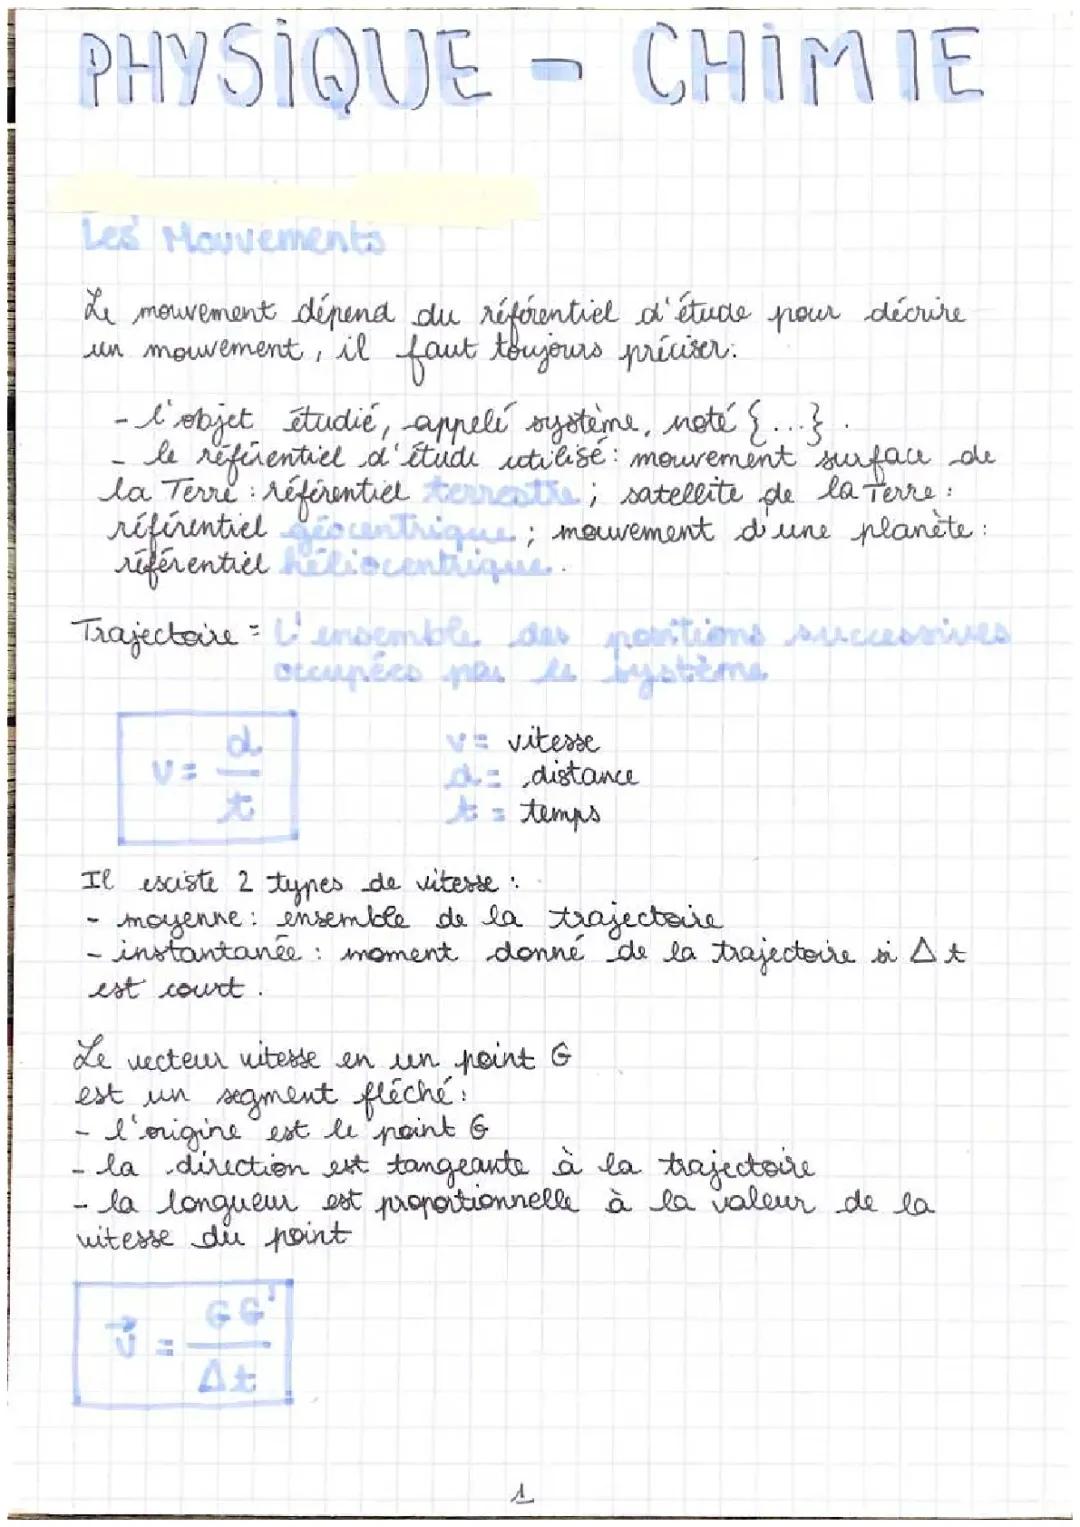 PHYSIQUE - CHIMIE
Les Mouvements
Le mouvement dépend du référentiel d'étude pour décrire
un mouvement, il faut toujours préciser:
- l'objet étudié, appelé système, noté {...}.
- le référentiel d'étude utilisé: mouvement surface de
la Terre : référentiel terrestre ; satellite de la Terre :
référentiel géocentrique ; mouvement d'une planète :
référentiel héliocentrique.
Trajectoire = L'ensemble des positions successives
occupées par le système
v = d / t
v = vitesse
d = distance
t = temps
Il esciste 2 types de vitesse :
- moyenne : ensemble de la trajectoire
- instantanée : moment donné de la trajectoire si Δt
est court.
Le vecteur vitesse en un point G
est un segment fléché :
- l'origine est le point G
- la direction est tangeante à la trajectoire
- la longueur est proportionnelle à la valeur de la
vitesse du point
v⃗ = GG' / Δt
1